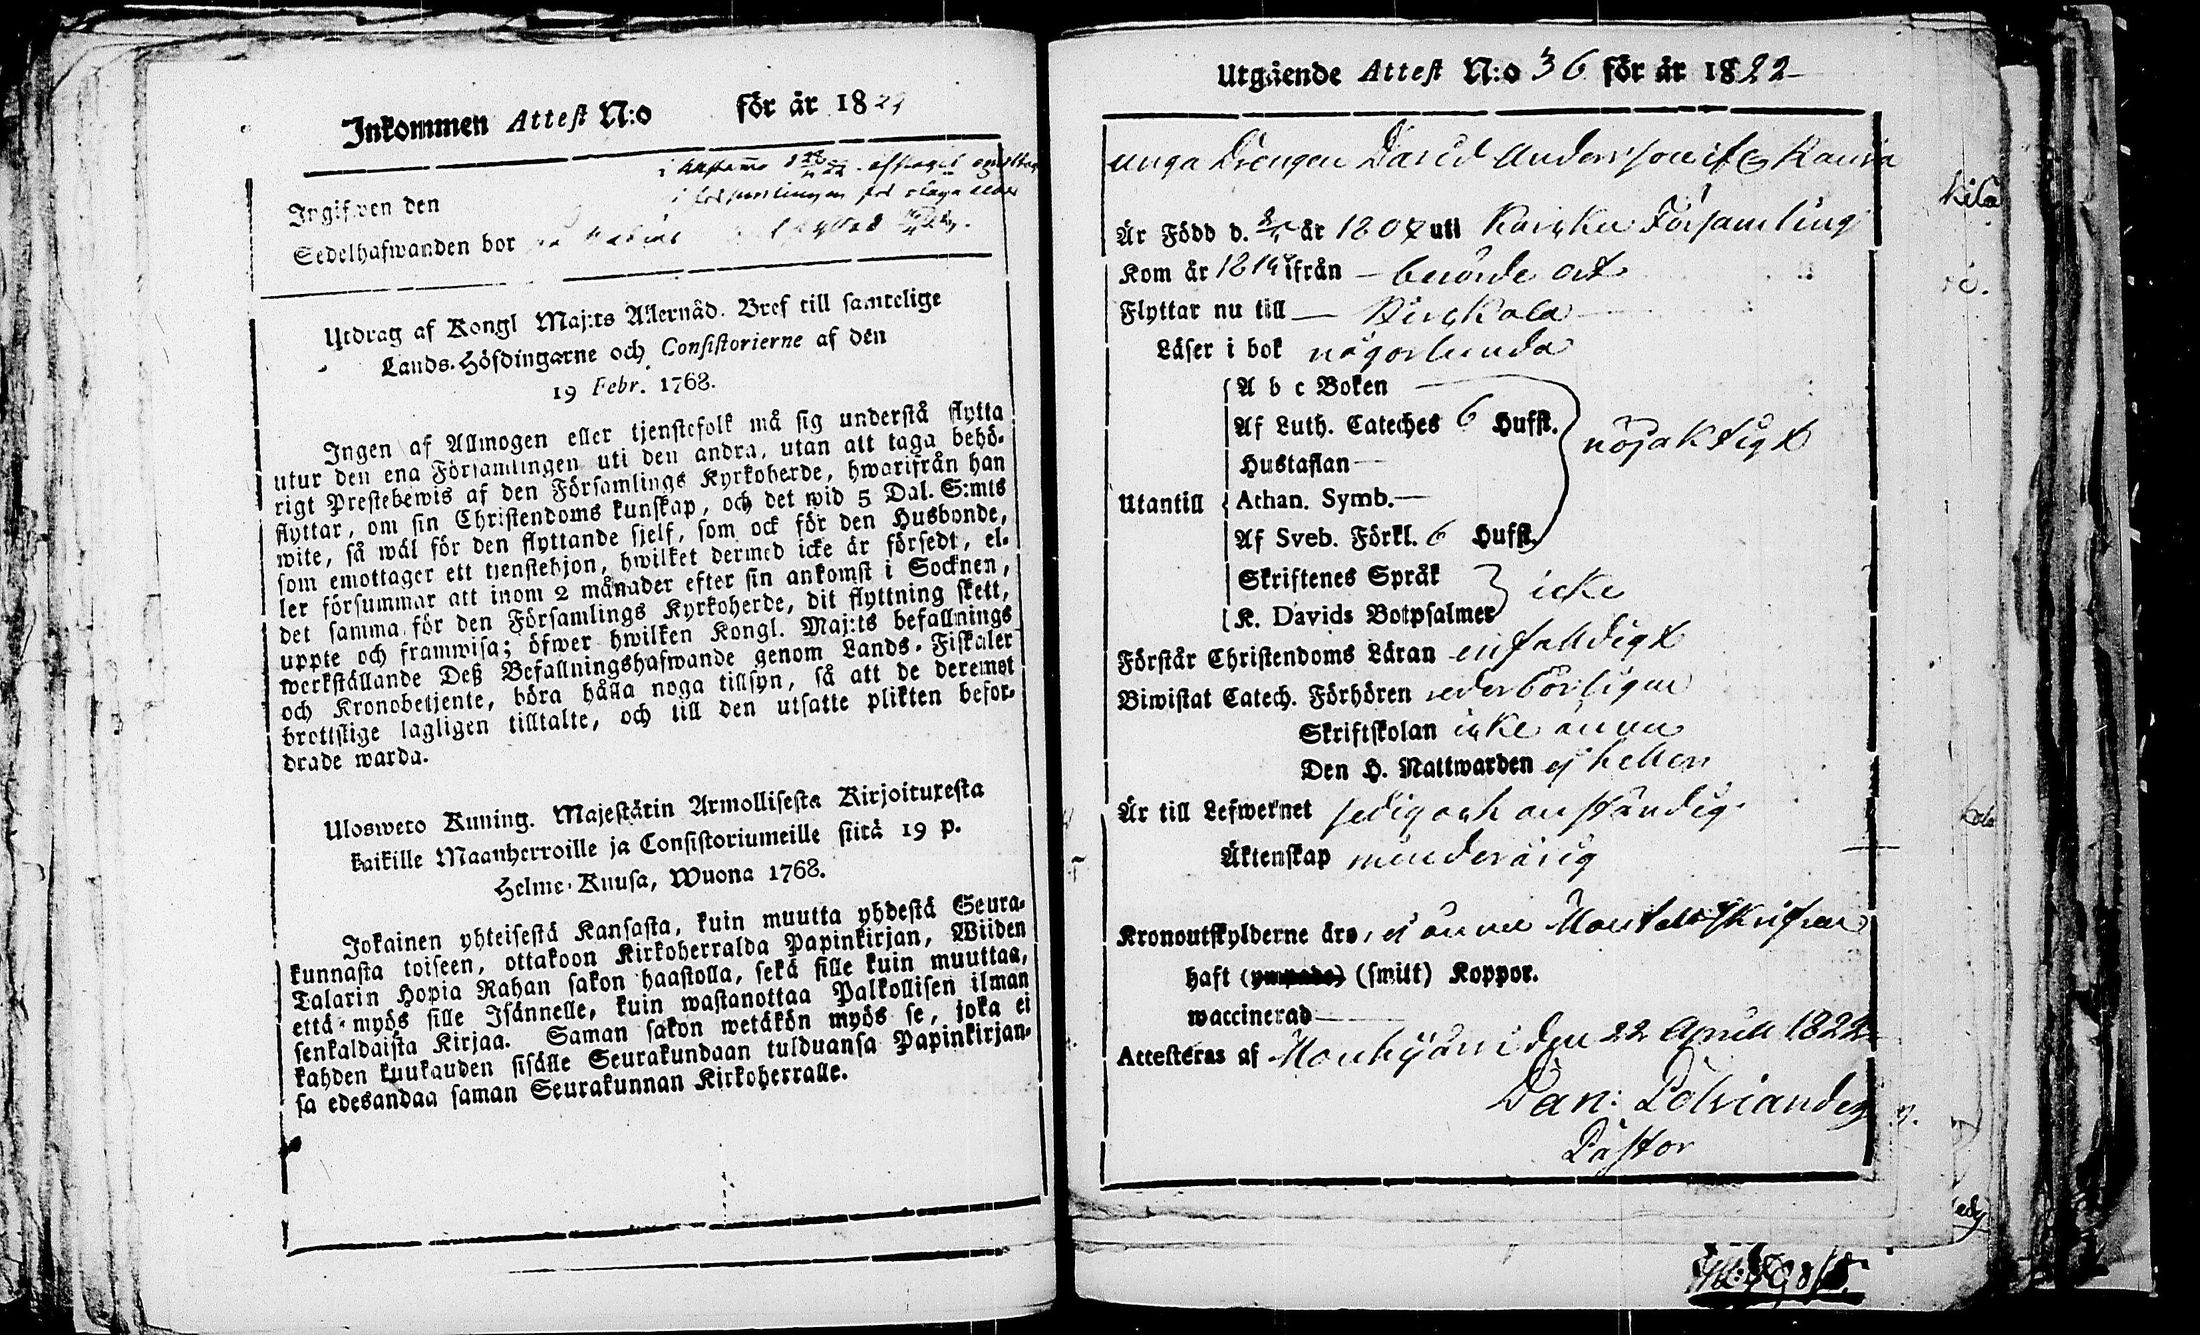 Inkommen Attest N:o för år 18
Ingifwen den
Sedelhafwanden bor
Utdrag af Kongl Maj:ts Allernåd. Bref till samtelige
Lands-Höfdingarne och Consistorierne af den
19 Febr. 1768.
Ingen af Allmogen eller tjenstefolk må sig understå flytta
utur den ena Församlingen uti den andra, utan att taga behö-
rigt Prestebewis af den Församlings Kyrkoherde, hwarifrån han
flyttar, om sin Christendoms kunskap, och det wid 5 Dal. S:mts
wite, så wäl för den flyttande sjelf, som ock för den Husbonde,
som emottager ett tjenstehjon, hwilket dermed icke är försedt, el-
ler försummar att inom 2 månader efter sin ankomst i Socknen,
det samma för den Församlings Kyrkoherde, dit flyttning skett,
uppte och framwisa; öfwer hwilken Kongl. Maj:ts befallnings
werkställande Deß Befallningshafwande genom Lands-Fiskaler
och Kronobetjente, böra hålla noga tillsyn, så att de deremot
brottslige lagligen tilltalte, och till den utsatte plikten befor-
drade warda.
Ulosweto Kuning. Majestätin Armollisesta Kirjoituxesta
kaikille Maanherroille ja Consistoriumeille siitä 19 p.
Helme-Kuusa, Wuona 1768.
Jokainen yhteisestä Kansasta, kuin muutta yhdestä Seura-
kunnasta toiseen, ottakoon Kirkoherralda Papinkirjan, Wiiden
Talarin Hopia Rahan sakon haastolla, sekä sille kuin muuttaa,
että myös sille Isännelle, kuin wastanottaa Palkollisen ilman
senkaldaista Kirjaa. Saman sakon wetäkön myös se, joka ei
kahden kuukauden sisälle Seurakundaan tulduansa Papinkirjan-
sa edesandaa saman Seurakunnan Kirkoherralle.
Utgående Attest N:o 36 för år 1822
unga Drengen David Andersson if
Är Född d. år 1807 uti Församling
Kom år ifrån berörde ort
Flyttar nu till
Läser i bok någorlunda
A b c Boken
Af Luth. Cateches 6 Hufst.
Hustaflan
nöjaktigt
Utantill Athan. Symb.
Af Sveb. Förkl. 6 Hufst.
Skriftenes Språk
icke
K. Davids Botpsalmer
Förstår Christendoms Läran enfalldigt
Biwistat Catech. Förhören vederbörligen
Skriftskolan icke ännu
Den H. Nattwarden ej heller
Är till Lefwernet sedig och anständig
Äktenskap minderårig
Kronoutskylderne äro, ej ännu Mantalsskrifven
haft (ympade) (smitt) Koppor.
waccinerad
Attesteras af Mouhijärvi den 22 April 1822
Dan: Pastor